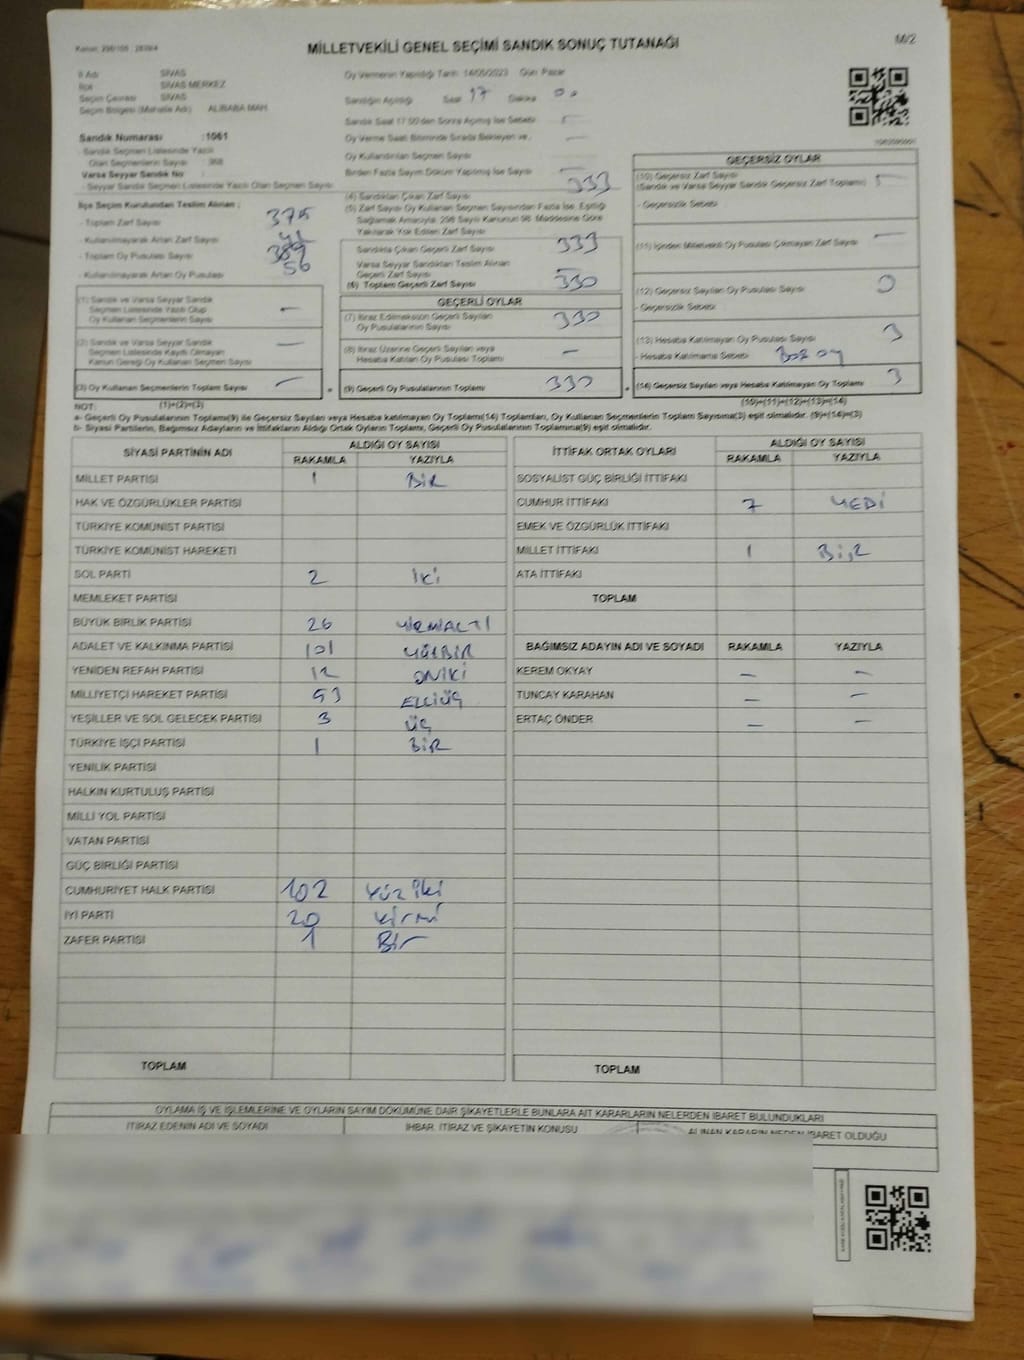 M/2
MİLLETVEKİLİ GENEL SEÇİMİ SANDIK SONUÇ TUTANAĞI
İl Adı SİVAS
İlçe SİVAS MERKEZ
Seçim Çevresi SİVAS
Seçim Bölgesi (Mahalle Adı) ALİBABA MAH.
Sandık Numarası :1061
- Sandık Seçmen Listesinde Yazılı
Olan Seçmenlerin Sayısı : 368
Varsa Seyyar Sandık No :
- Seyyar Sandık Seçmen Listesinde Yazılı Olan Seçmen Sayısı
İlçe Seçim Kurulundan Teslim Alınan ;
- Toplam Zarf Sayısı 375
- Kullanılmayarak Artan Zarf Sayısı
- Toplam Oy Pusulası Sayısı
- Kullanılmayarak Artan Oy Pusulası 56
(1) Sandık ve Varsa Seyyar Sandık
Seçmen Listesinde Yazılı Olup
Oy Kullanan Seçmenlerin Sayısı -
(2) Sandık ve Varsa Seyyar Sandık
Seçmen Listesinde Kayıtlı Olmayan
Kanun Gereği Oy Kullanan Seçmen Sayısı -
(3) Oy Kullanan Seçmenlerin Toplam Sayısı -
Oy Vermenin Yapıldığı Tarih 14/05/2023 Gün Pazar
Sandığın Açıldığı Saat 17 Dakika 00
Sandık Saat 17:00'den Sonra Açılmış İse Sebebi
Oy Verme Saati Bitiminde Sırada Bekleyen ve -
Oy Kullandırılan Seçmen Sayısı
Birden Fazla Sayım Döküm Yapılmış İse Sayısı -
(4) Sandıktan Çıkan Zarf Sayısı 333
(5) Zarf Sayısı Oy Kullanan Seçmen Sayısından Fazla İse, Eşitliği
Sağlamak Amacıyla, 298 Sayılı Kanunun 98. Maddesine Göre
Yakılarak Yok Edilen Zarf Sayısı
Sandıkta Çıkan Geçerli Zarf Sayısı 333
Varsa Seyyar Sandıktan Teslim Alınan
Geçerli Zarf Sayısı -
(6) Toplam Geçerli Zarf Sayısı 330
GEÇERLİ OYLAR
(7) İtiraz Edilmeksizin Geçerli Sayılan
Oy Pusulalarının Sayısı 330
(8) İtiraz Üzerine Geçerli Sayılan veya
Hesaba Katılan Oy Pusulası Toplamı -
(9) Geçerli Oy Pusulalarının Toplamı 330
GEÇERSİZ OYLAR
(10) Geçersiz Zarf Sayısı
(Sandık ve Varsa Seyyar Sandık Geçersiz Zarf Toplamı)
- Geçersizlik Sebebi
(11) İçinden Milletvekili Oy Pusulası Çıkmayan Zarf Sayısı -
(12) Geçersiz Sayılan Oy Pusulası Sayısı 0
- Geçersizlik Sebebi
(13) Hesaba Katılmayan Oy Pusulası Sayısı 3
- Hesaba Katılmama Sebebi Boş oy
(14) Geçersiz Sayılan veya Hesaba Katılmayan Oy Toplamı 3
NOT: (1)+(2)=(3) (10)+(11)+(12)+(13)=(14)
a- Geçerli Oy Pusulalarının Toplamı(9) ile Geçersiz Sayılan veya Hesaba katılmayan Oy Toplamı(14) Toplamları, Oy Kullanan Seçmenlerin Toplam Sayısına(3) eşit olmalıdır. (9)+(14)=(3)
b- Siyasi Partilerin, Bağımsız Adayların ve İttifakların Aldığı Ortak Oyların Toplamı, Geçerli Oy Pusulalarının Toplamına(9) eşit olmalıdır.
SİYASİ PARTİNİN ADI ALDIĞI OY SAYISI
RAKAMLA YAZIYLA
MİLLET PARTİSİ 1 BİR
HAK VE ÖZGÜRLÜKLER PARTİSİ
TÜRKİYE KOMÜNİST PARTİSİ
TÜRKİYE KOMÜNİST HAREKETİ
SOL PARTİ 2 İKİ
MEMLEKET PARTİSİ
BÜYÜK BİRLİK PARTİSİ 26 YİRMİALTI
ADALET VE KALKINMA PARTİSİ 101 YÜZBİR
YENİDEN REFAH PARTİSİ 12 ONİKİ
MİLLİYETÇİ HAREKET PARTİSİ 53 ELLİÜÇ
YEŞİLLER VE SOL GELECEK PARTİSİ 3 ÜÇ
TÜRKİYE İŞÇİ PARTİSİ 1 BİR
YENİLİK PARTİSİ
HALKIN KURTULUŞ PARTİSİ
MİLLİ YOL PARTİSİ
VATAN PARTİSİ
GÜÇ BİRLİĞİ PARTİSİ
CUMHURİYET HALK PARTİSİ 102 yüz iki
İYİ PARTİ 20 yirmi
ZAFER PARTİSİ 1 Bir
TOPLAM
İTTİFAK ORTAK OYLARI ALDIĞI OY SAYISI
RAKAMLA YAZIYLA
SOSYALİST GÜÇ BİRLİĞİ İTTİFAKI
CUMHUR İTTİFAKI 7 YEDİ
EMEK VE ÖZGÜRLÜK İTTİFAKI
MİLLET İTTİFAKI 1 BİR
ATA İTTİFAKI
TOPLAM
BAĞIMSIZ ADAYIN ADI VE SOYADI RAKAMLA YAZIYLA
KEREM OKYAY - -
TUNCAY KARAHAN - -
ERTAÇ ÖNDER - -
TOPLAM
OYLAMA İŞ VE İŞLEMLERİNE VE OYLARIN SAYIM DÖKÜMÜNE DAİR ŞİKAYETLERLE BUNLARA AİT KARARLARIN NELERDEN İBARET BULUNDUKLARI
İTİRAZ EDENİN ADI VE SOYADI İHBAR, İTİRAZ VE ŞİKAYETİN KONUSU ALINAN KARARIN NEDEN İBARET OLDUĞU